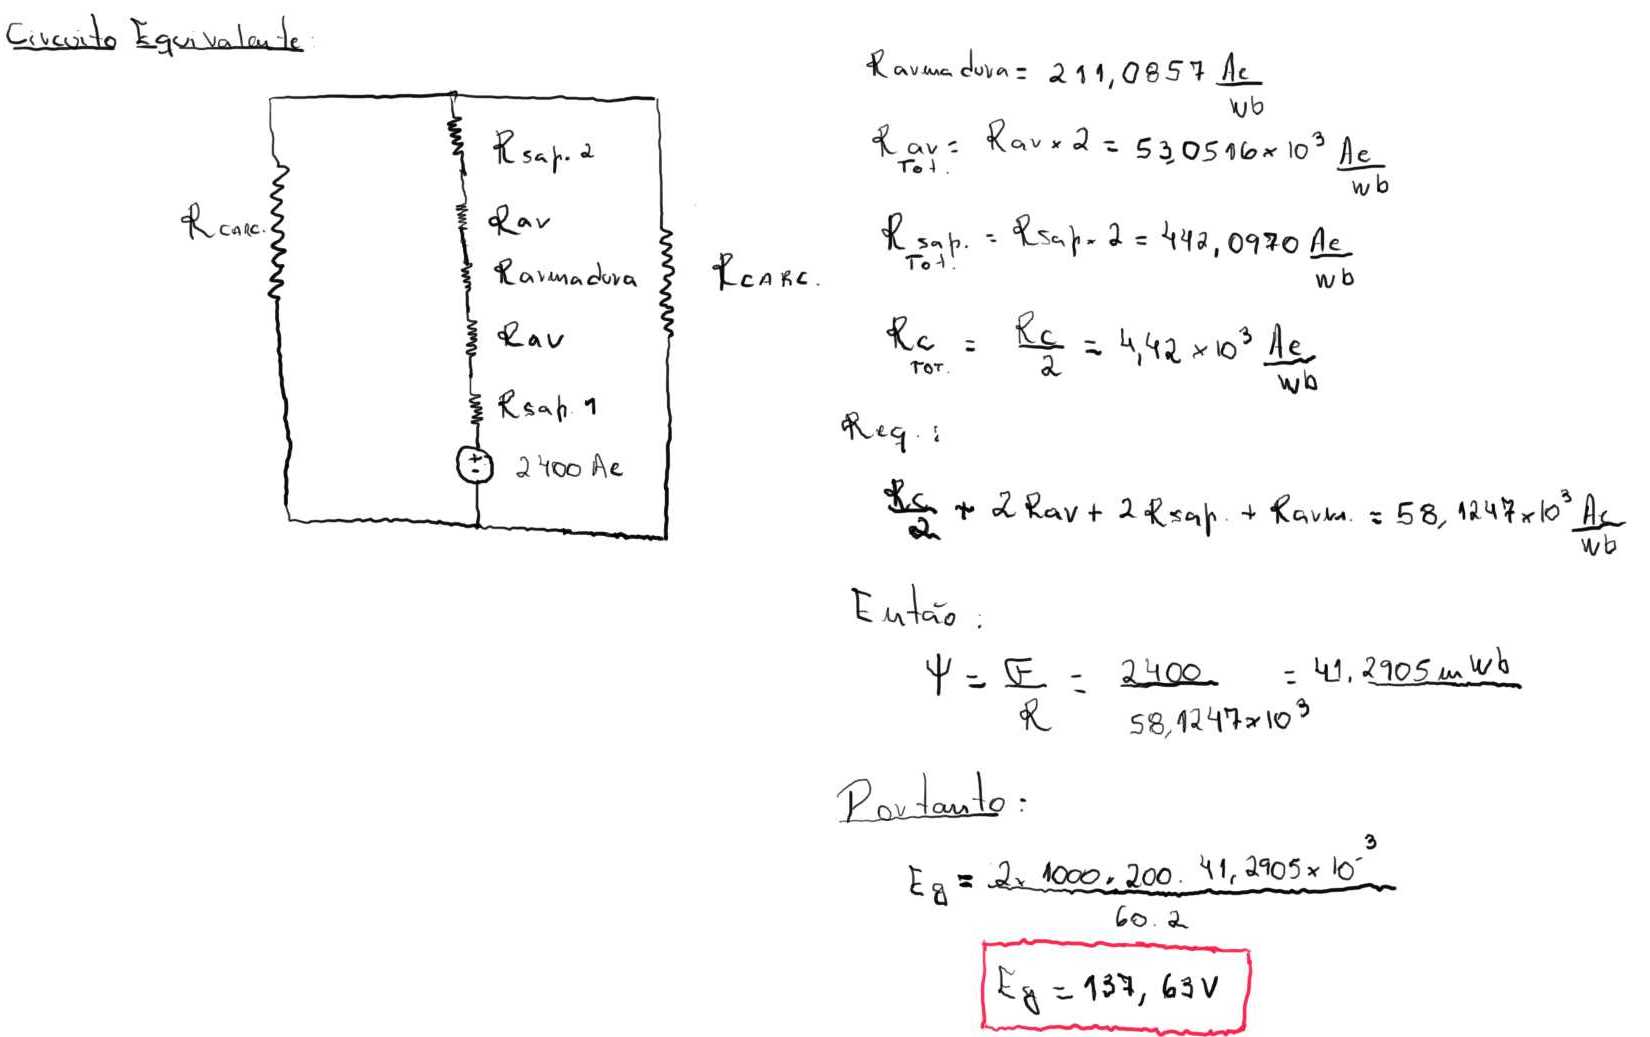 Circuito Equivalente:
Rsap. 2
Rcarc.
Rav
Rarmadura
RCARC.
Rav
Rsap. 1
+
-
2400 Ae
Rarmadura = 211,0857 Ae/wb
Rav Tot. = Rav x 2 = 53,0516 x 10³ Ae/wb
Rsap. Tot. = Rsap. 2 = 442,0970 Ae/wb
Rc TOT. = Rc/2 = 4,42 x 10³ Ae/wb
Req. :
Rc/2 + 2 Rav + 2 Rsap. + Rarm. = 58,1247 x 10³ Ae/wb
Então :
Ψ = F/R = 2400/58,1247 x 10³ = 41,2905 m Wb
Portanto :
Eg = 2 x 1000 . 200 . 41,2905 x 10⁻³/60 . 2
Eg = 137,63 V